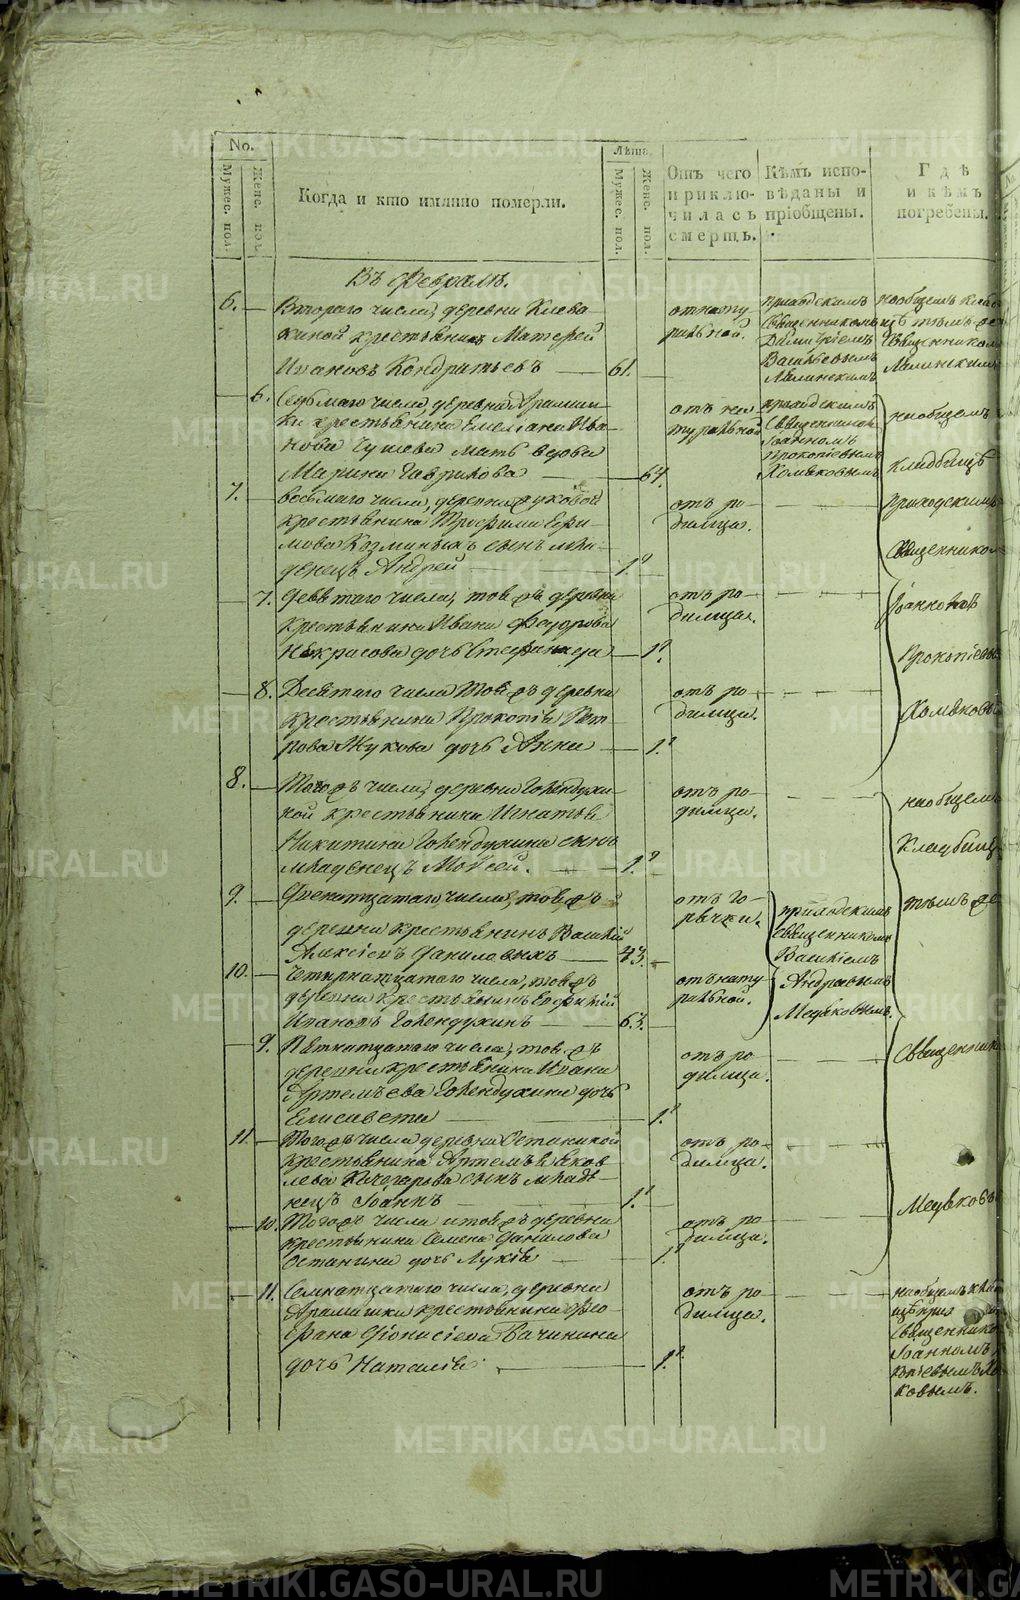 No.
Мужес. пол.
Женс. пол.
Когда и кто имянно померли.
Лѣта.
Мужес. пол.
Женс. пол.
Отъ чего
приклю-
чилась
смерть.
Кѣмъ испо-
вѣданы и
пріобщены.
Гдѣ
и кѣмъ
погребены.
Въ Февралѣ.
6. Втораго числа, деревни Клева
киной крестьянинъ Матфей
Ивановъ Кондратьевъ 61.
отнату
ральной.
приходскимъ
Священникомъ
Димитріемъ
Васильевымъ
Лялинскимъ
наобщемъ клад
Священником
Лялинскимъ
6. Седьмаго числа деревни Арамаш
ки крестьянина Емельяна Ива
нова мать вдова
Марина Гаврилова 67.
отъ на
туральной
приходскимъ
Священником
Іоанномъ
Прокопіевымъ
Хомяковымъ
наобщемъ
кладбищѣ
приходскимъ
Священником
Іоанномъ
Прокопіевы
Хомяковы
7. восьмаго числа, деревни Луковой
крестьянина Трофима Ефи
мова Козминыхъ сынъ мла
денецъ Андрей 1.
отъ ро
димца.
7. Девятаго числа, той жъ деревни
крестьянина Ивана Федорова
Некрасова дочь Стефанида 1.
отъ ро
димца.
8. Десятаго числа Той жъ деревни
крестьянина Прокопія Пет
рова Жукова дочь Анна 1.
отъ ро
димца.
8. Того жъ числа, деревни Голендухи
ной крестьянина Игнатья
Никитина Голендухина сынъ
младенецъ Моѵсей. 1.
отъ ро
димца.
наобщемъ
Кладбищѣ
тѣмъ же
Священник
Медяковы
9. Двенатцатаго числа, той жъ
деревни крестьянинъ Василій
Алексіевъ Даниловыхъ 43.
отъ го
рячки.
приходскимъ
священником
Василіемъ
Андреевымъ
Медяковымъ.
10. Четырнатцатаго числа, той жъ
деревни крестьянинъ
Ивановъ Голендухинъ 63.
отънату
ральной.
9. Пятнатцатаго числа, той жъ
деревни крестьянина Ивана
Артемьева Голендухина дочь
Елисавета 1.
отъ ро
димца.
11. Того жъ числа деревни Останиной
крестьянина Артемья Яков
лева Качегарова сынъ младе
нецъ Іоаннъ 1.
отъ ро
димца.
10. Того жъ числа итой жъ деревни
крестьянина Семена Данилова
Останина дочь Лукія 1.
отъ ро
димца.
11. Семнатцатаго числа, деревни
Арамашки крестьянина Фео
фана Діонисіева Бачинина
дочь Наталія. 1.
отъ ро
димца.
наобщемъ кла
щѣ при
Священнико
Іоанномъ
копіевымъ Хо
ковымъ.
METRIKI.GASO-URAL.RU